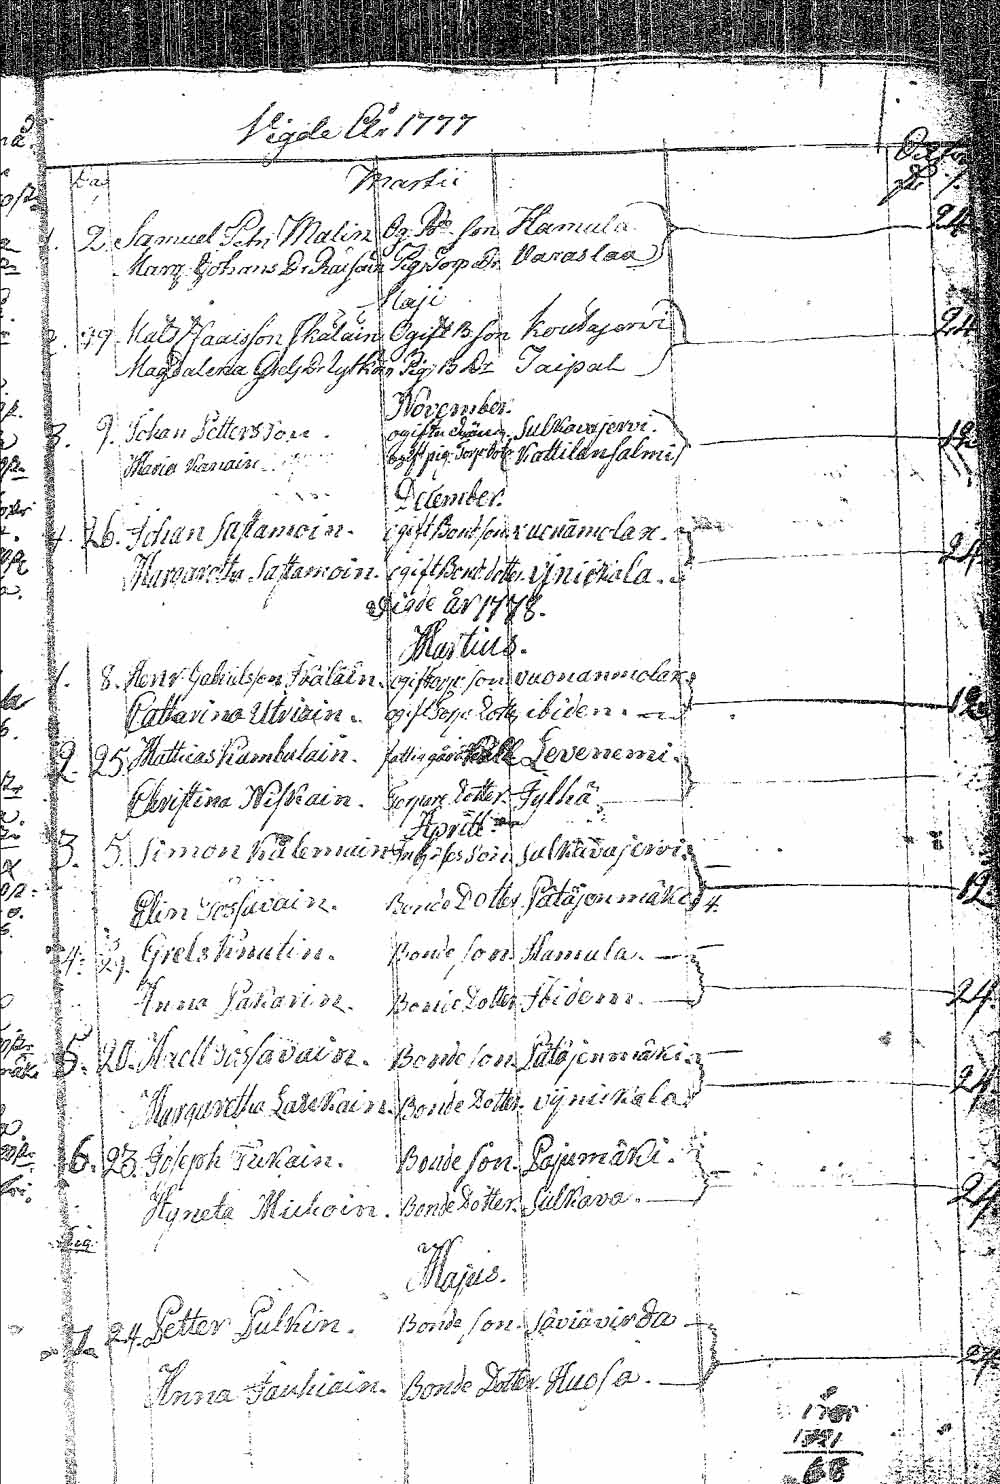 Vigde År 1777
Dag Martii
1. 2. Samuel Petri Malin Og. Bo. son Hamula 24
Marg Johans Dr Raisain Pig. Torp Dr Varaslaa
Maji
2. 19. Mats Isaaisson Ikäläin Ogift B son Koutajervi 24
Magdalena Grels Dr Lytikäin Pig. B Dr Taipal
November.
3. 9. Johan Pettersson. ogifter dräng. Sulkavajervi. 12
Maria Kanain ogift pig. Torp Dotr Kottilansalmi
December.
4. 26. Johan Sastamoin. ogift Bond son. 24
Margaretha Sastamoin. ogift Bond dotter. Vijnickala.
Vigde år 1778.
Martius.
1. 8. Henr Gabrielsson Ikäläin. ogift torp. son vuonanmolax 12
Catharina Utriain. ogift Torp Dotter ibidem.
2. 25. Matthias Kumbulain. Levenemi.
Christina Niskain. Torpare dotter. Jylhä
Aprill.
3. 5. Simon Kälemain son Sulkavajervi. 12
Elin Jössavain. Bonde Dotter. Pätäjenmäki 4.
4. 29. Grels Knutin. Bonde son. Hamula.
Anna Pakarin. Bonde Dotter. Ibidem. 24.
5. 20. Jössavain. Bonde son. Pätäjenmäki.
Margaretha Laukain. Bonde Dotter. vijnickala 24.
6. 23. Joseph Tukain. Bonde son. Pajumäki.
Hyneta Michoin. Bonde Dotter. Sulkava. 24.
Majus.
7. 24. Petter Pulkin. Bonde son. Säviävirda
Anna Jauhiain. Bonde Dotter. Huosa. 24
68